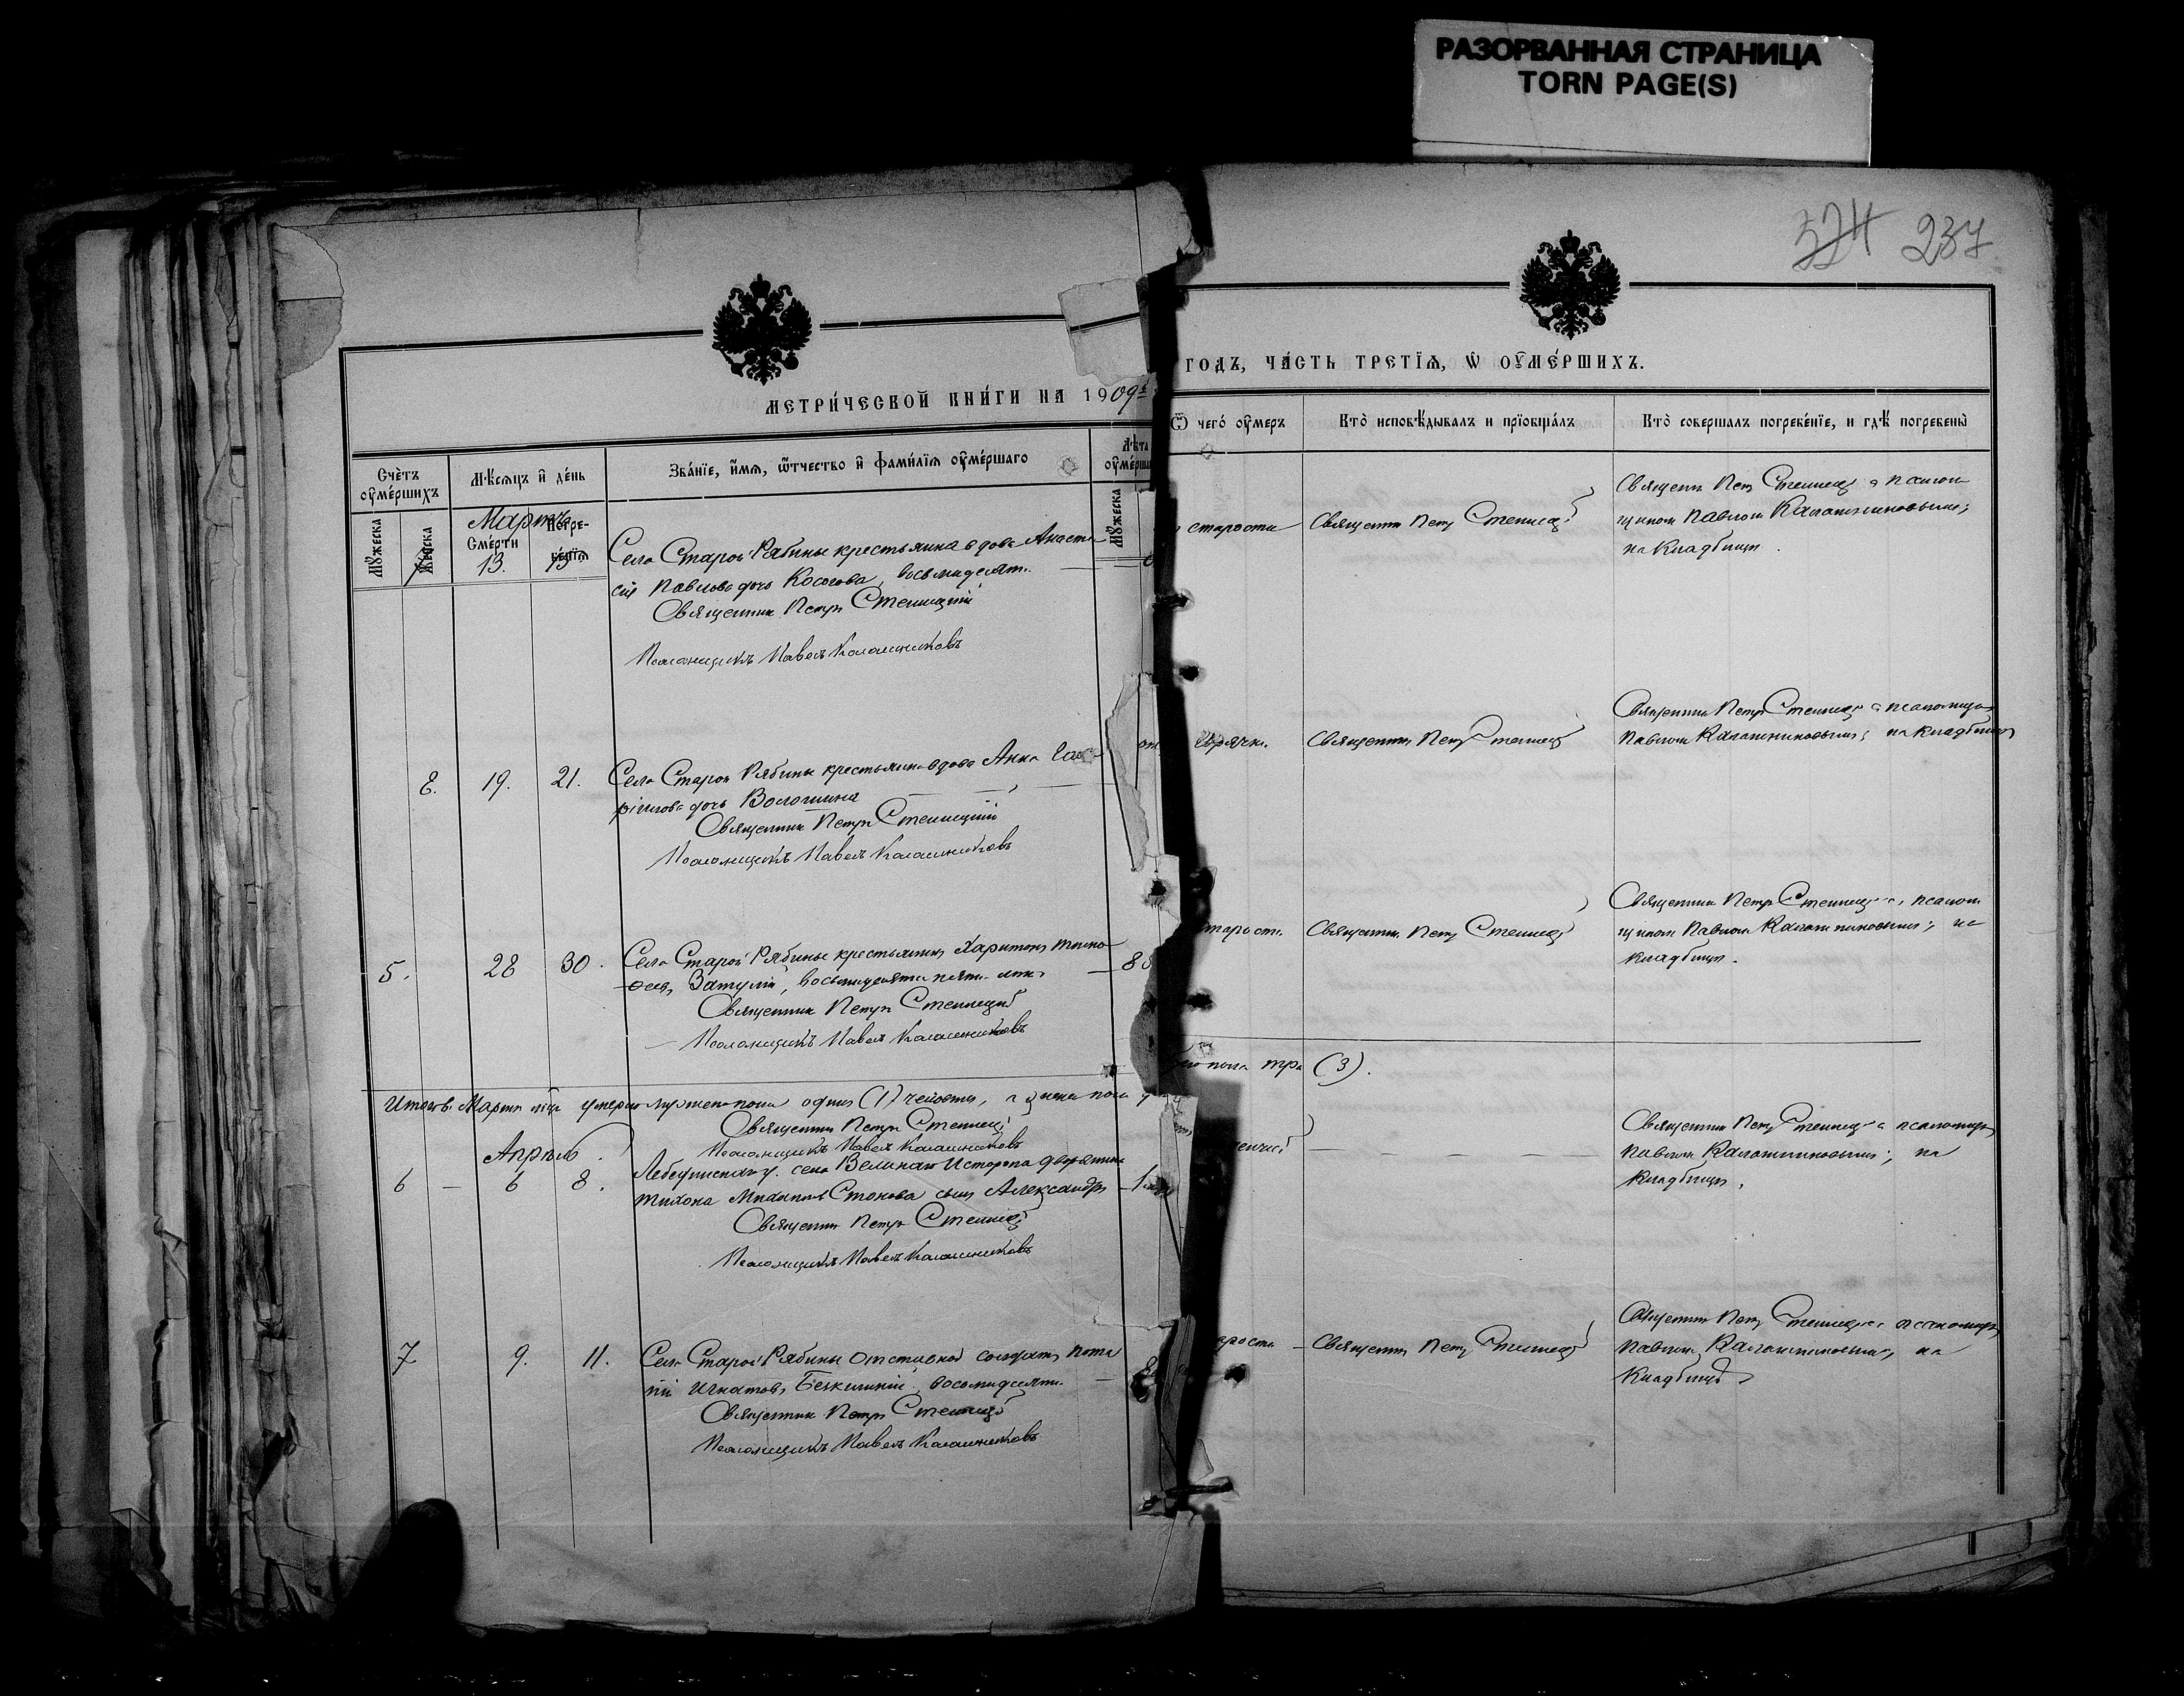 РАЗОРВАННАЯ СТРАНИЦА
TORN PAGE(S)
324 237
МЕТРИ́ЧЕСКОЙ КНИ́ГИ НА 1909й
ГОДЪ, ЧА́СТЬ ТРЕТЇѦ, Ѡ ОУМЕ́РШИХЪ.
Счётъ оумéршихъ
Мѣ́сяцъ и де́нь
Зва́нїе, и́мѧ, ѿтчество и фами́лїѧ оумéршаго
Лѣта
Му́жеска
Же́нска
Мартъ
Сме́рти
Погре-
бенїѧ
Му́жеска
Ѿ чегó оу́меръ
Ктò исповѣ́дывалъ и прїобща́лъ
Ктò соверша́лъ погребéнїе, и гдѣ̀ погребены̀
13. 15
Села Старой Рябины крестьянина вдова Анаста
сія Павлова дочь Косогова, восьмидесят.
Священник Петръ Стеницкій
Псаломщикъ Павелъ Калашниковъ
старости
Священник Петр Стеницкій
Священник Петр Стеницкій с псалом
щиком Павлом Калашниковым;
на кладбищѣ.
8. 19. 21.
Села Старой Рябины крестьянина вдова Анна
дочь Волошина
Священник Петръ Стеницкій
Псаломщикъ Павелъ Калашниковъ
горячки.
Священник Петр Стеницкій
Священник Петръ Стеницкій с псаломщиком
Павлом Калашниковым; на кладбищѣ
5. 28 30.
Села Старой Рябины крестьянин Харитон Тимо
феев Затулій, восьмидесяти пяти лѣт
Священник Петръ Стеницкій
Псаломщикъ Павелъ Калашниковъ
85
тарости.
Священник Петр Стеницкій
Священник Петръ Стеницкій с псалом
щиком Павлом Калашниковым; на
кладбищѣ.
Итого в Мартѣ м-цѣ умерло мужеска пола один (1) человѣк, а женска пола
три (3).
Священник Петръ Стеницкій
Псаломщикъ Павелъ Калашниковъ
Апрѣль
6 – 6 8.
Лебединскаго у. села Великаго Исторопа дворянина
Тихона Михаилова сын Александръ
Священник Петръ Стеницкій
Псаломщикъ Павелъ Калашниковъ
Священник Петр Стеницкій с псаломщиком
Павлом Калашниковым; на
кладбищѣ.
7 9. 11.
Села Старой Рябины отставной солдатъ
Игнатов, восьмидесяти.
Священник Петръ Стеницкій
Псаломщикъ Павелъ Калашниковъ
арости
Священник Петр Стеницкій
Священник Петр Стеницкій с псаломщиком
Павлом Калашниковым, на
кладбищѣ